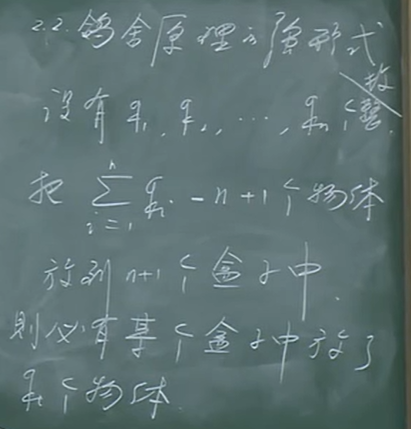 2.2. 鸽舍原理的强形式
设有 q₁, q₂, …, qₙ 个整数
把 ∑ᵢ₌₁ⁿ qᵢ - n + 1 个物体
放到 n+1 个盒子中.
则必有某个盒子中放了
qᵢ 个物体.